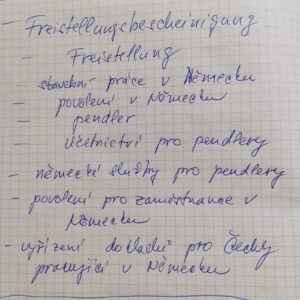 Freistellungsbescheinigung
- Freistellung
- stavební práce v Německu
- povolení v Německu
- pendler
- účetnictví pro pendlery
- německé služby pro pendlery
- povolení pro zaměstnance v
Německu
- vyřízení dokladů pro Čechy
pracující v Německu